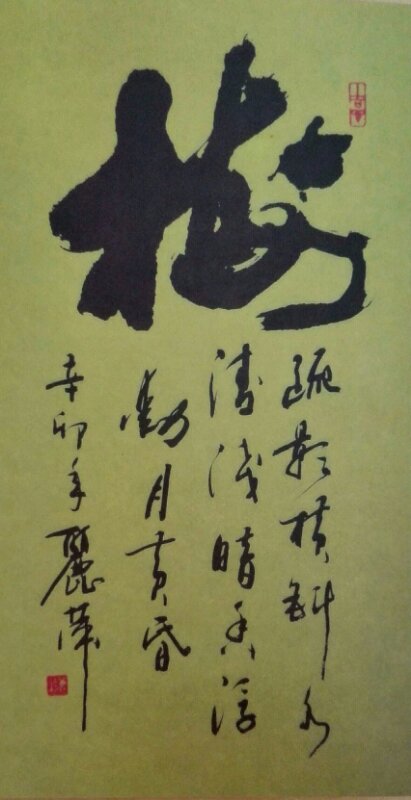 梅
疏影橫斜水
清淺暗香浮
動月黃昏
辛卯年麗萍